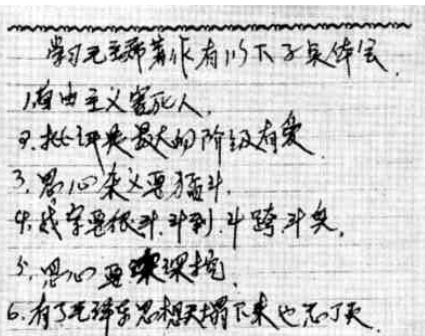 学习毛主席著作有以下子点体会
1.自由主义害死人.
2.批评是最大的阶级友爱
3.思心杂义要猛斗.
4.我字要狠斗.斗到.斗垮斗臭.
5.思心要深挖.
6.有了毛泽东思想天塌下来也忘了天.